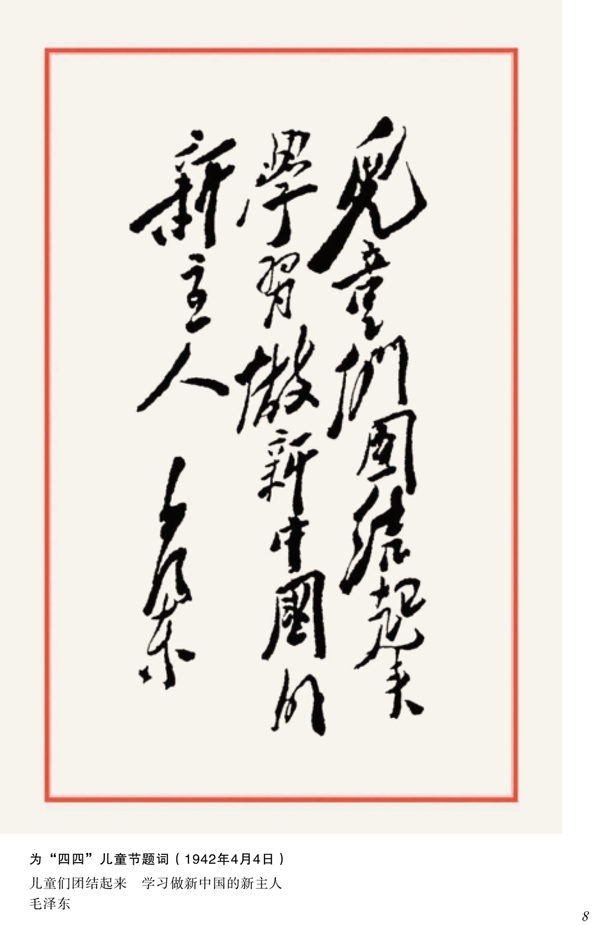 兒童們團结起来
學習做新中國的
新主人
毛泽东
为“四四”儿童节题词（1942年4月4日）
儿童们团结起来　学习做新中国的新主人
毛泽东
8